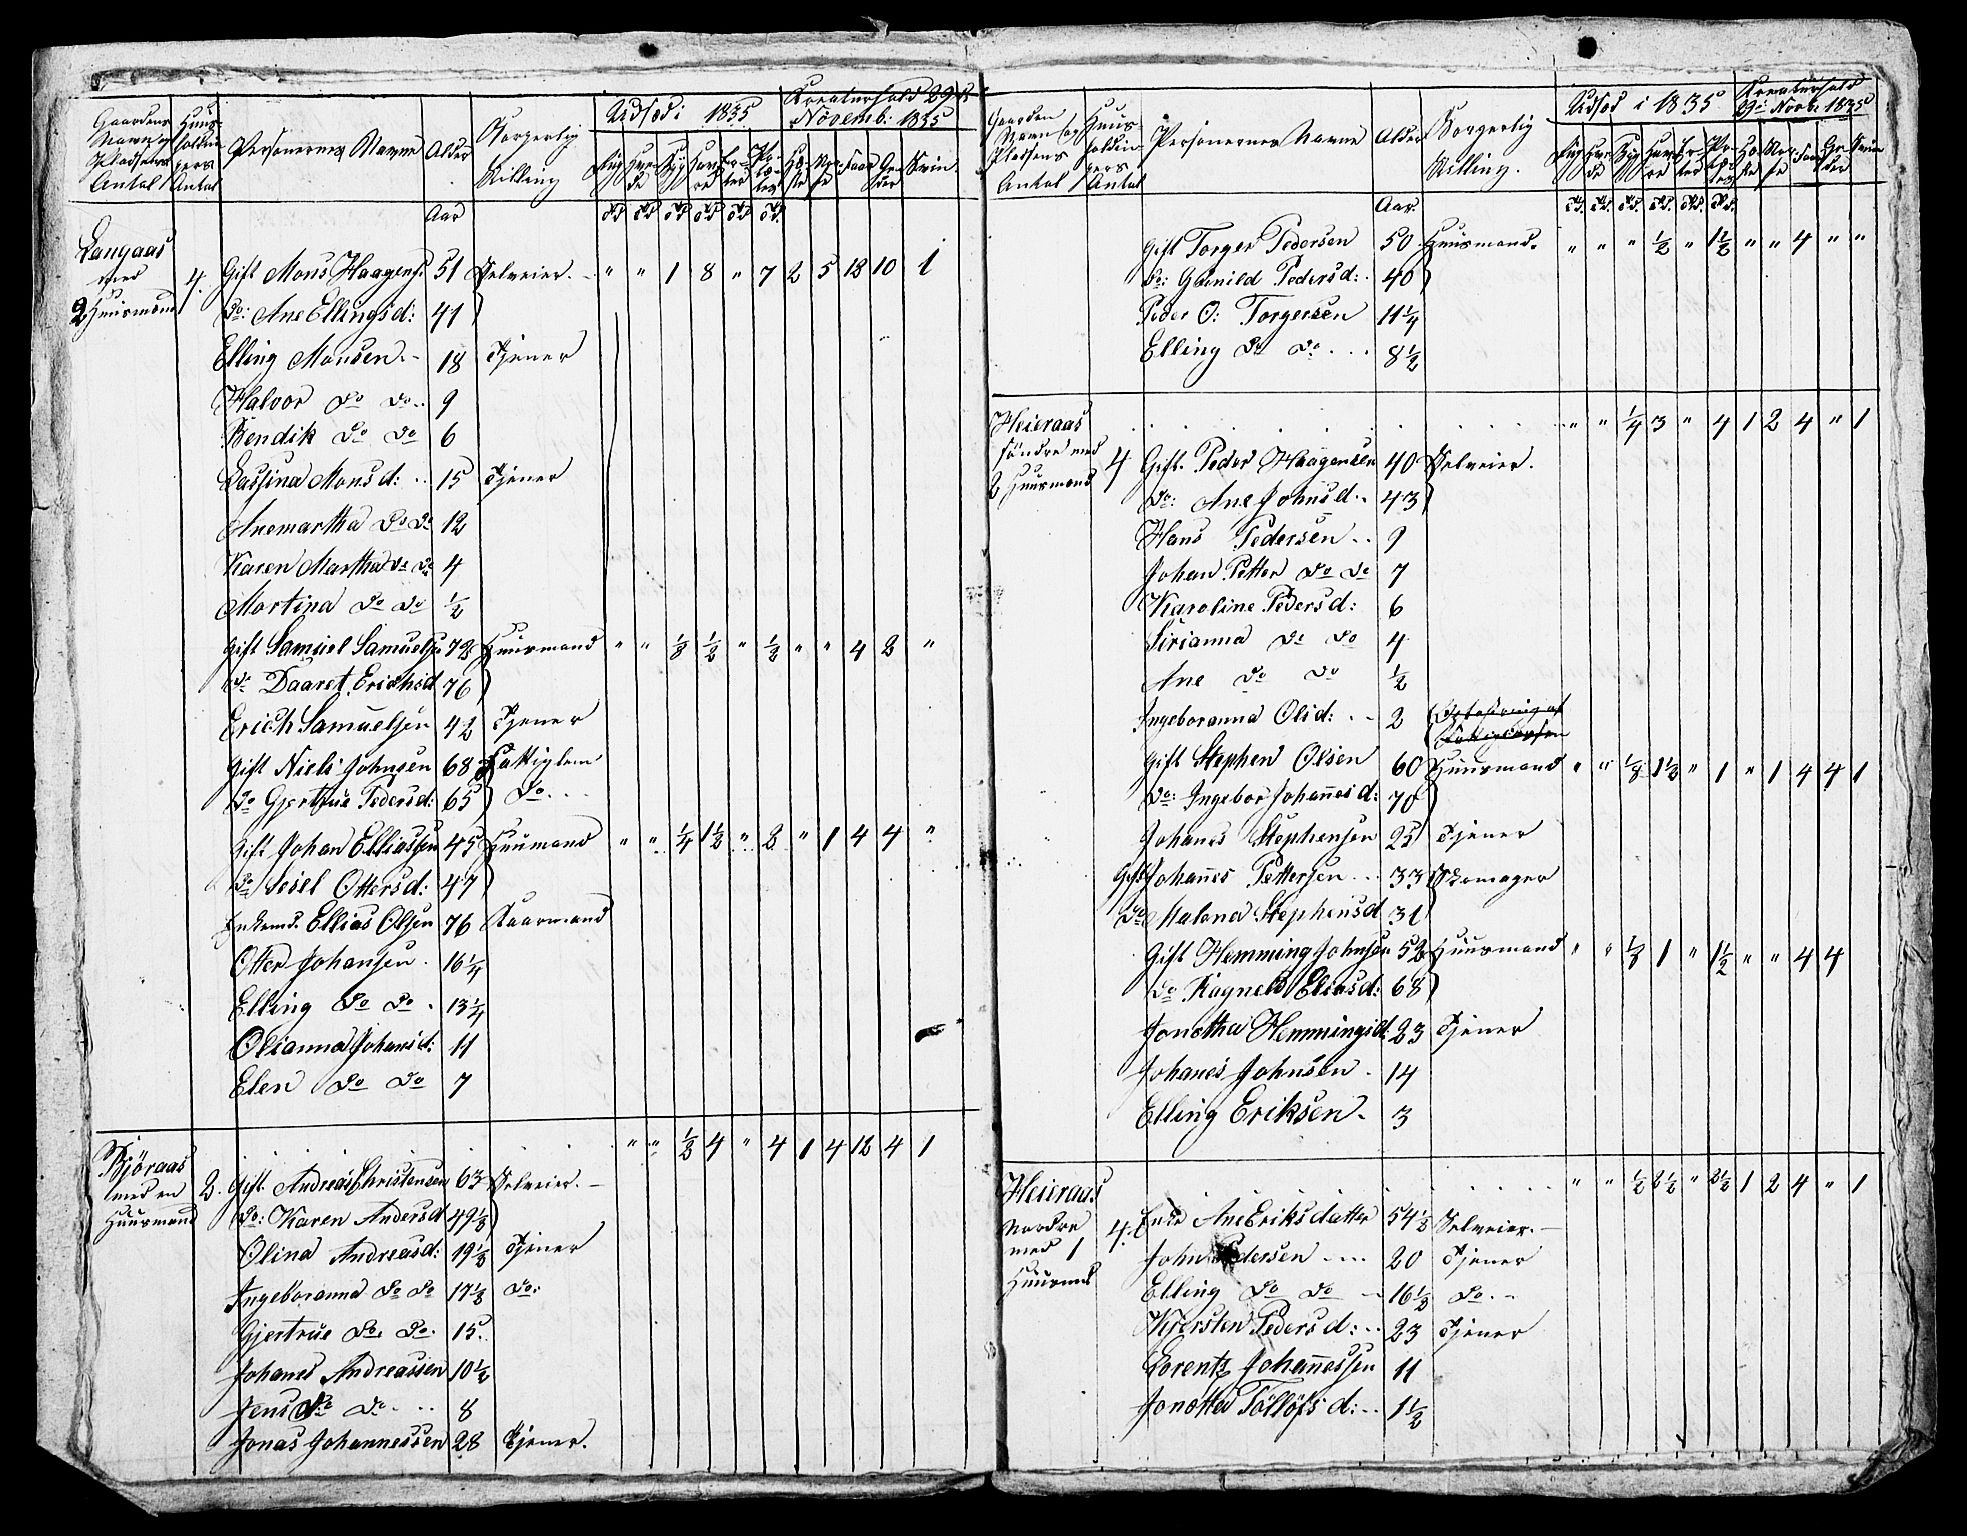 Gaardens Navn og Pladsens Antal | Huusholdningers Antal | Personernes Navne | Alder | Borgerlig Stilling | Udsæd i 1835 | Kreaturhold 29de Novemb: 1835
Rug | Hvede | Byg | Havre | Erter | Potatoes | Heste | Qvæ | Faar | Geder | Sviin
Aar
Langaas med 2 Huusmænd | 4. | Gift Mons Haagens: | 51 | Selveier. | " | " | 1 | 8 | " | 7 | 2 | 5 | 18 | 10 | 1
Do: Ane Ellingsd: | 41
Elling Monsen. | 18 | Tjener
Halvor Do Do | 9
Bendik Do Do | 6
Lassina Monsd: | 15 | Tjener
Anemartha Do Do | 12
Karen Martha Do Do | 4
Martina Do Do | ½
Gift Samuel Samuelsen | 72 | Huusmand | " | " | ⅛ | ½ | " | ½ | " | " | 4 | 2 | "
Do Daaret Erichsd | 76
Erich Samuelsen | 42 | Tjener
Gift Niels Johnsen | 68 | Fattiglem
Do Gjertrue Pedersd: | 65 | Do
Gift Johan Elliassen | 45 | Huusmand | " | " | ¼ | 1½ | " | 2 | " | 1 | 4 | 4 | "
Do Sesel Ottersd: | 47
Enkemd. Ellias Olsen | 76 | Kaarmand
Otter Johansen | 16¼
Elling Do Do | 13¼
Olianna Johansd: | 11
Elen Do Do | 7
" | " | ½ | 4 | " | 4 | 1 | 4 | 12 | 4 | 1
Björaas med en Huusmand | 2. | Gift. Andreas Christensen | 63 | Selveier.
Do: Karen Andersd | 49½
Olina Andreasd: | 19½ | Tjener
Ingeboranna Do Do | 17½ | Do:
Gjertrue Do. Do. | 15.
Johanes Andreassen | 10½
Jens Do Do | 8
Jonas Johannessen | 28 | Tjener.
Gaarden Navn og Pladsens Antal | Huusholdningers Antal | Personernes Navne | Alder | Borgerlig Stilling. | Udsæd i 1835 | Kreaturhold 29de Novb: 1835
Rug | Hvede | Byg | Havre | Erter | Potatoes | Heste | Qvæ | Faar | Geder | Sviin
Aar.
Gift Torger Pedersen | 50 | Huusmand. | " | " | " | ½ | " | 1½ | " | " | 4 | " | "
Do: Gunild Pedersd: | 40
Peder O: Torgersen | 11¼
Elling Do Do | 8½
" | " | ¼ | 3 | " | 4 | 1 | 2 | 4 | " | 1
Heieraas söndre med 2 Huusmænd | 4 | Gift. Peder Haagensen | 40 | Selveier.
Do: Ane Johnsd. | 43
Hans Pedersen | 9
Johan Petter Do Do | 7
Karoline Pedersd: | 6
Sirianna Do Do | 4
Ane Do Do | ½
Ingeboranna Olsd: | 2
Gift Stephen Olsen | 60 | Huusmand | " | " | ⅛ | 1½ | " | 1 | " | 1 | 4 | 4 | 1
Do: Ingebor Johanesd: | 70
Johanes Stephensen | 25 | Tjener
Gift Johannes Pettersen | 33 | Skomager
Do Malena Stephensd | 31
Gift Hemming Johnsen | 52 | Huusmand | " | " | ⅛ | 1 | " | 1½ | " | " | 4 | 4
Do Ragneld Eliasd: | 68
Jonetha Hemmingsd. | 23 | Tjener
Johanes Johnsen | 14
Elling Eriksen | 3
" | " | ½ | 2½ | " | 2½ | 1 | 2 | 4 | " | 1
Heieraas Nordre med 1 Huusmd | 4. | Enke Ane Eriksdatter | 54½ | Selveier.
John Pedersen | 20 | Tjener
Elling Do Do | 16½ | Do.
Kjersten Pedersd: | 23 | Tjener
Lorentz Johannessen | 11
Jonetta Tollöfsd: | 1½